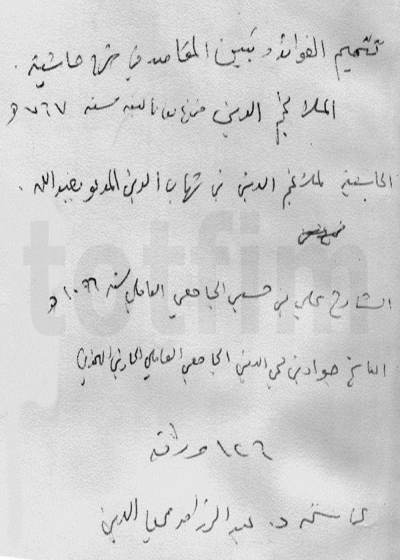 تتميم الفوائد وتبيين المقاصد في شرح حاشية
الملا نجم الدين سنة ٧٦٧ هـ
الحاشية لملا نجم الدين بن شهاب الدين المدعو بعبد الله .
الشارح علي بن حسين الجامعي العاملي سنة ١٠٦٦ هـ
الناسخ جواد بن محي الدين الجامعي العاملي الحارثي الهمداني
١٢٦ ورقة
totfim
د. عبد الرزاق محيي الدين